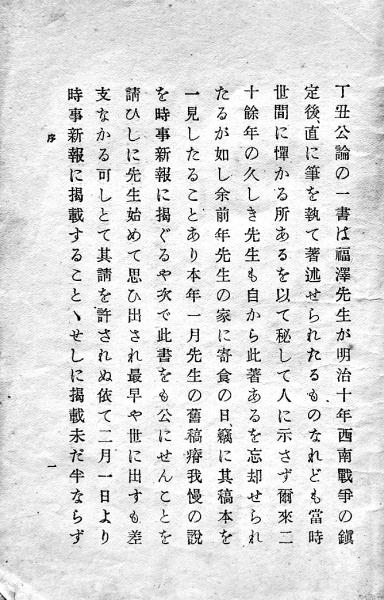 丁丑公論の一書は福澤先生が明治十年西南戰爭の鎭
定後、直に筆を執て著述せられたるものなれども當時
世間に憚かる所あるを以て秘して人に示さず爾來二
十餘年の久しき先生も自から此著あるを忘却せられ
たるが如し余前年先生の家に寄食の日竊に其稿本を
一見したることあり本年一月先生の舊稿瘠我慢の說
を時事新報に揭ぐるや次で此書をも公にせんことを
請ひしに先生始めて思ひ出され最早や世に出すも差
支なかる可しとて其請を許されぬ依て二月一日より
時事新報に揭載することゝせしに揭載未だ半ならず
序
一